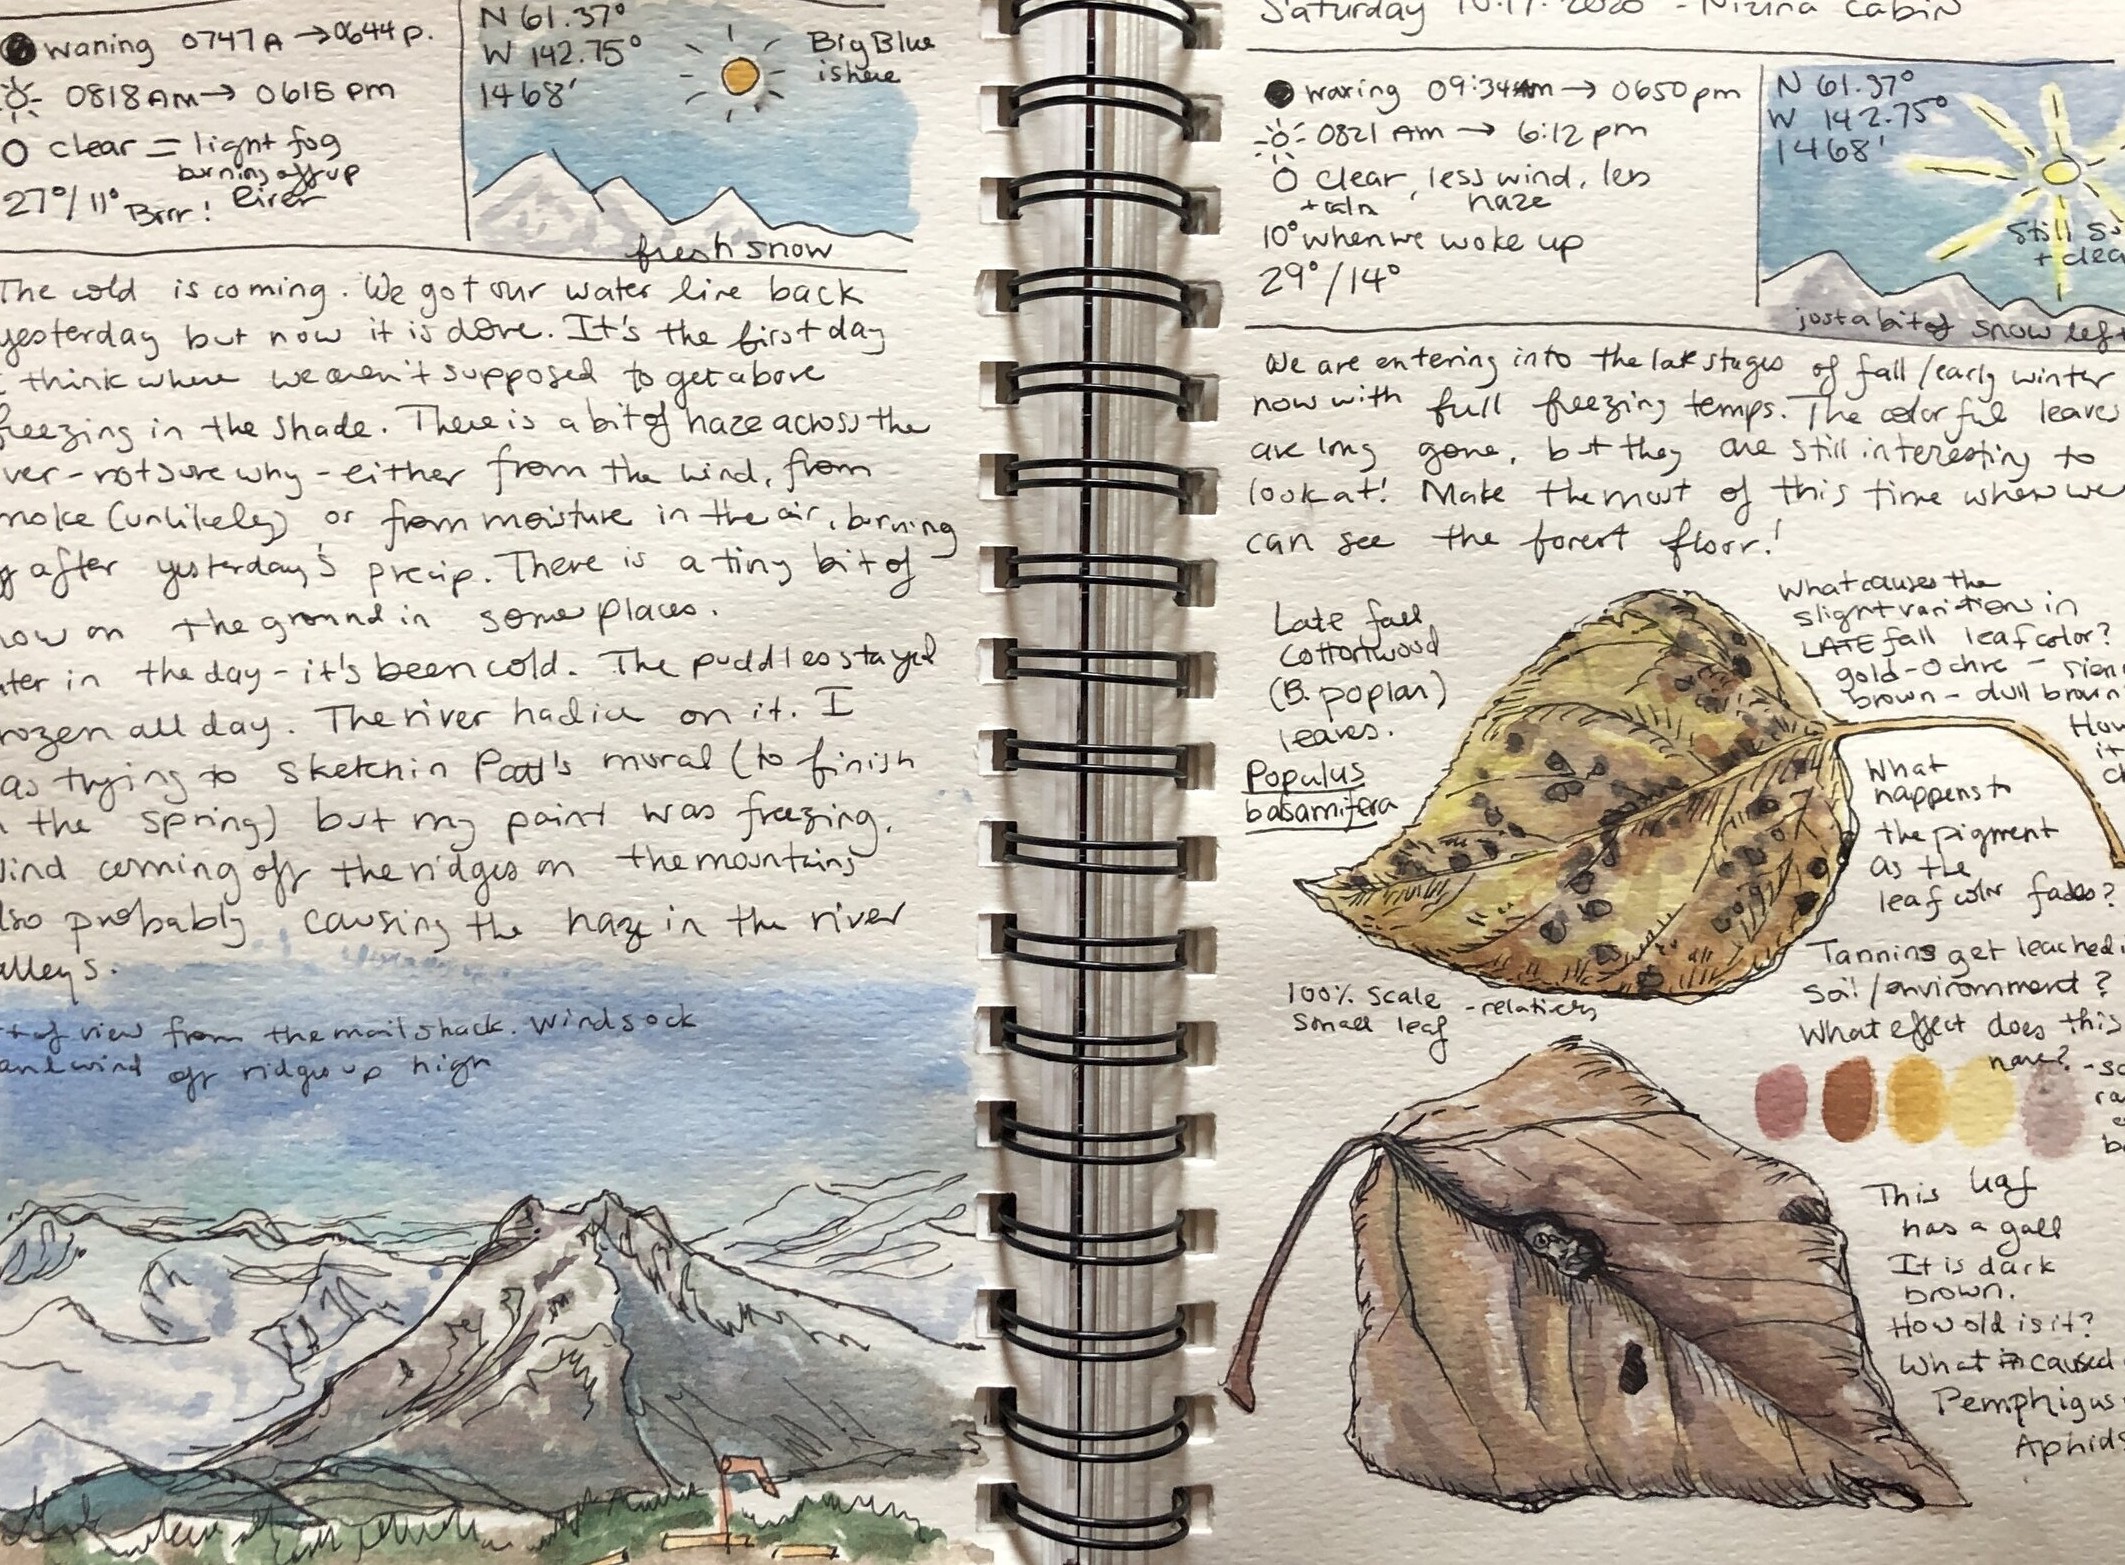 waning 0747A → 0644p.
0818 AM → 0615 pm
clear = light fog
burning off up
27°/11° Brrr! river
N 61.37°
W 142.75°
1468'
Big Blue
is here
fresh snow
The cold is coming. We got our water line back
yesterday but now it is done. It's the first day
I think where we aren't supposed to get above
freezing in the shade. There is a bit of haze across the
ver - not sure why - either from the wind, from
moke (unlikely) or from moisture in the air, burning
off after yesterday's precip. There is a tiny bit of
now on the ground in some places.
ter in the day - it's been cold. The puddles stayed
rozen all day. The river had ice on it. I
as trying to sketch in Patt's mural (to finish
n the spring) but my paint was freezing.
ind coming off the ridges on the mountains
lso probably causing the haze in the river
alleys.
t of view from the mail shack. Windsock
and wind off ridges up high
Saturday 10.17.2020 - Nizina Cabin
waxing 09:34am → 0650pm
0821 AM → 6:12 pm
clear, less wind, less
+ calm haze
10° when we woke up
29°/14°
N 61.37°
W 142.75°
1468'
Still su
+ clea
just a bit of snow left
We are entering into the late stages of fall/early winter
now with full freezing temps. The colorful leaves
are long gone, but they are still interesting to
look at! Make the most of this time when we
can see the forest floor!
Late fall
Cottonwood
(B. poplar)
leaves.
Populus
balsamifera
What causes the
slight variations in
LATE fall leaf color?
gold - ochre - sien
brown - dull brown
How
it
ch
What
happens to
the pigment
as the
leaf color fades?
100% scale - relatives
small leaf
Tannins get leached i
soil/environment?
What effect does this
have?
- so
ra
e
b
This leaf
has a gall
It is dark
brown.
How old is it?
What caused
Pemphigus
Aphids